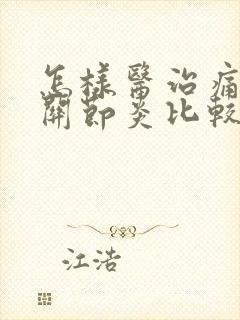 怎樣醫治痛
關節炎比較
江浩